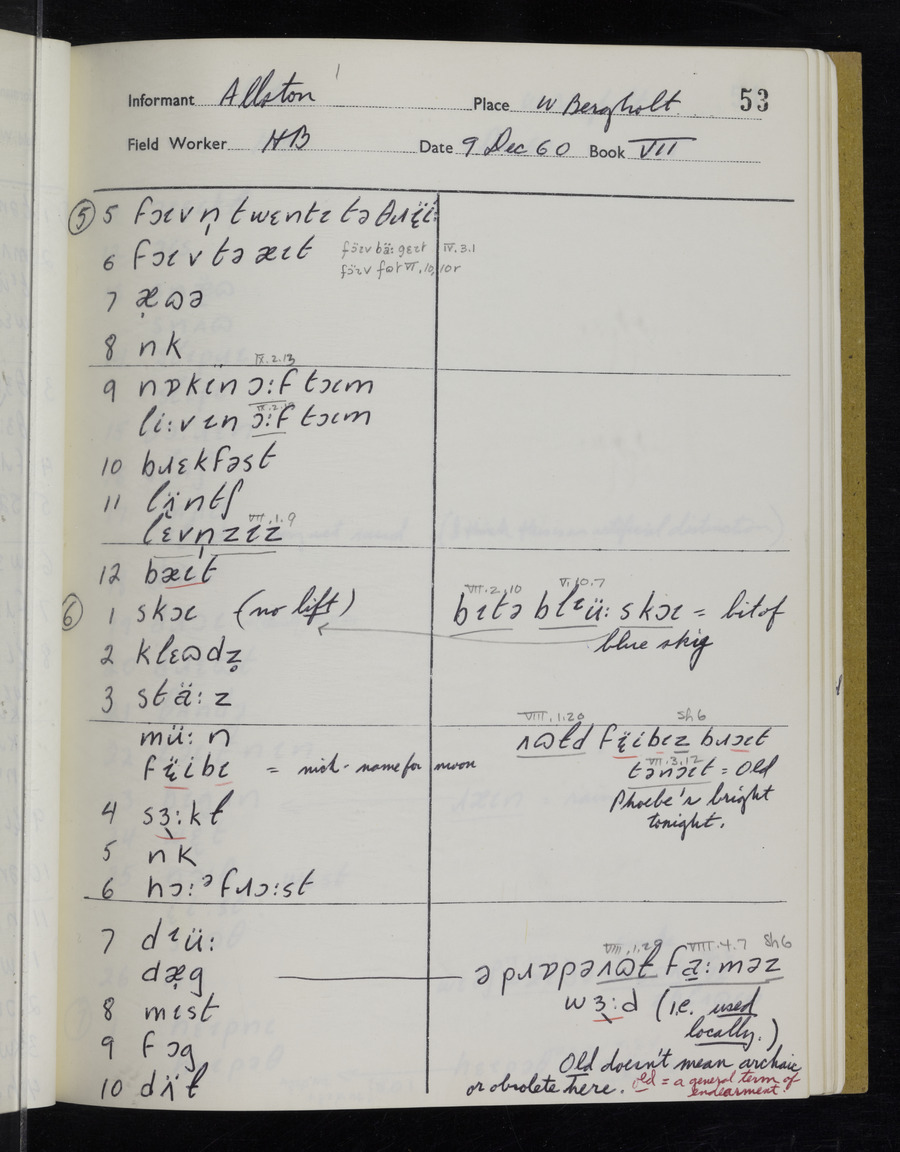 Informant Allston Place W Bergholt 53
Field Worker HB Date 9 Dec 60 Book VII
⑤ 5 fɔɪv n̩ twɛntɪ tə θɹï̞i:
6 fɔɪv tə æɪt fɔ̈ɪv bä:gɛɪt IV.3.1
fɔ̈ɪv fəɾ VI.10,10r
7 æ̣ɷə
8 nk
9 nɒkɪn ɔ:f tɔɪm IX.2.13
li:vɪn ɔ:f tɔɪm
10 bɹɛkfəst
11 lʌ̈ntʃ
lɛvn̩zɪz VII.1.9
12 bæɪt
⑥ 1 skɔɪ (no lift) bɪtə blᶦü: skɔɪ = bit of VII.2.10 V.10.7
blue sky
2 klɛɷdz̥
3 stä: z
mü: n ʌɷɫd fï̞ibɪz bɹɔɪt VIII.1.20 Sh6
fï̞ibɪ = nick-name for moon tənɔɪt = Old VII.3.12
Phoebe's bright
4 sɜ̞:kɫ tonight.
5 nk
6 hɔ:ᵊfɹɔ:st
7 dᶦü:
dæ̣g ə pɹɒpəɹʌɷɫ fa̤:məz VIII.1.20 VIII.4.7 Sh6
8 mɪst wɜ̞:d (i.e. used
locally.)
9 fɔg Old doesn't mean archaic
10 dʌ̈ɫ or obsolete here. old = a general term of
endearment.